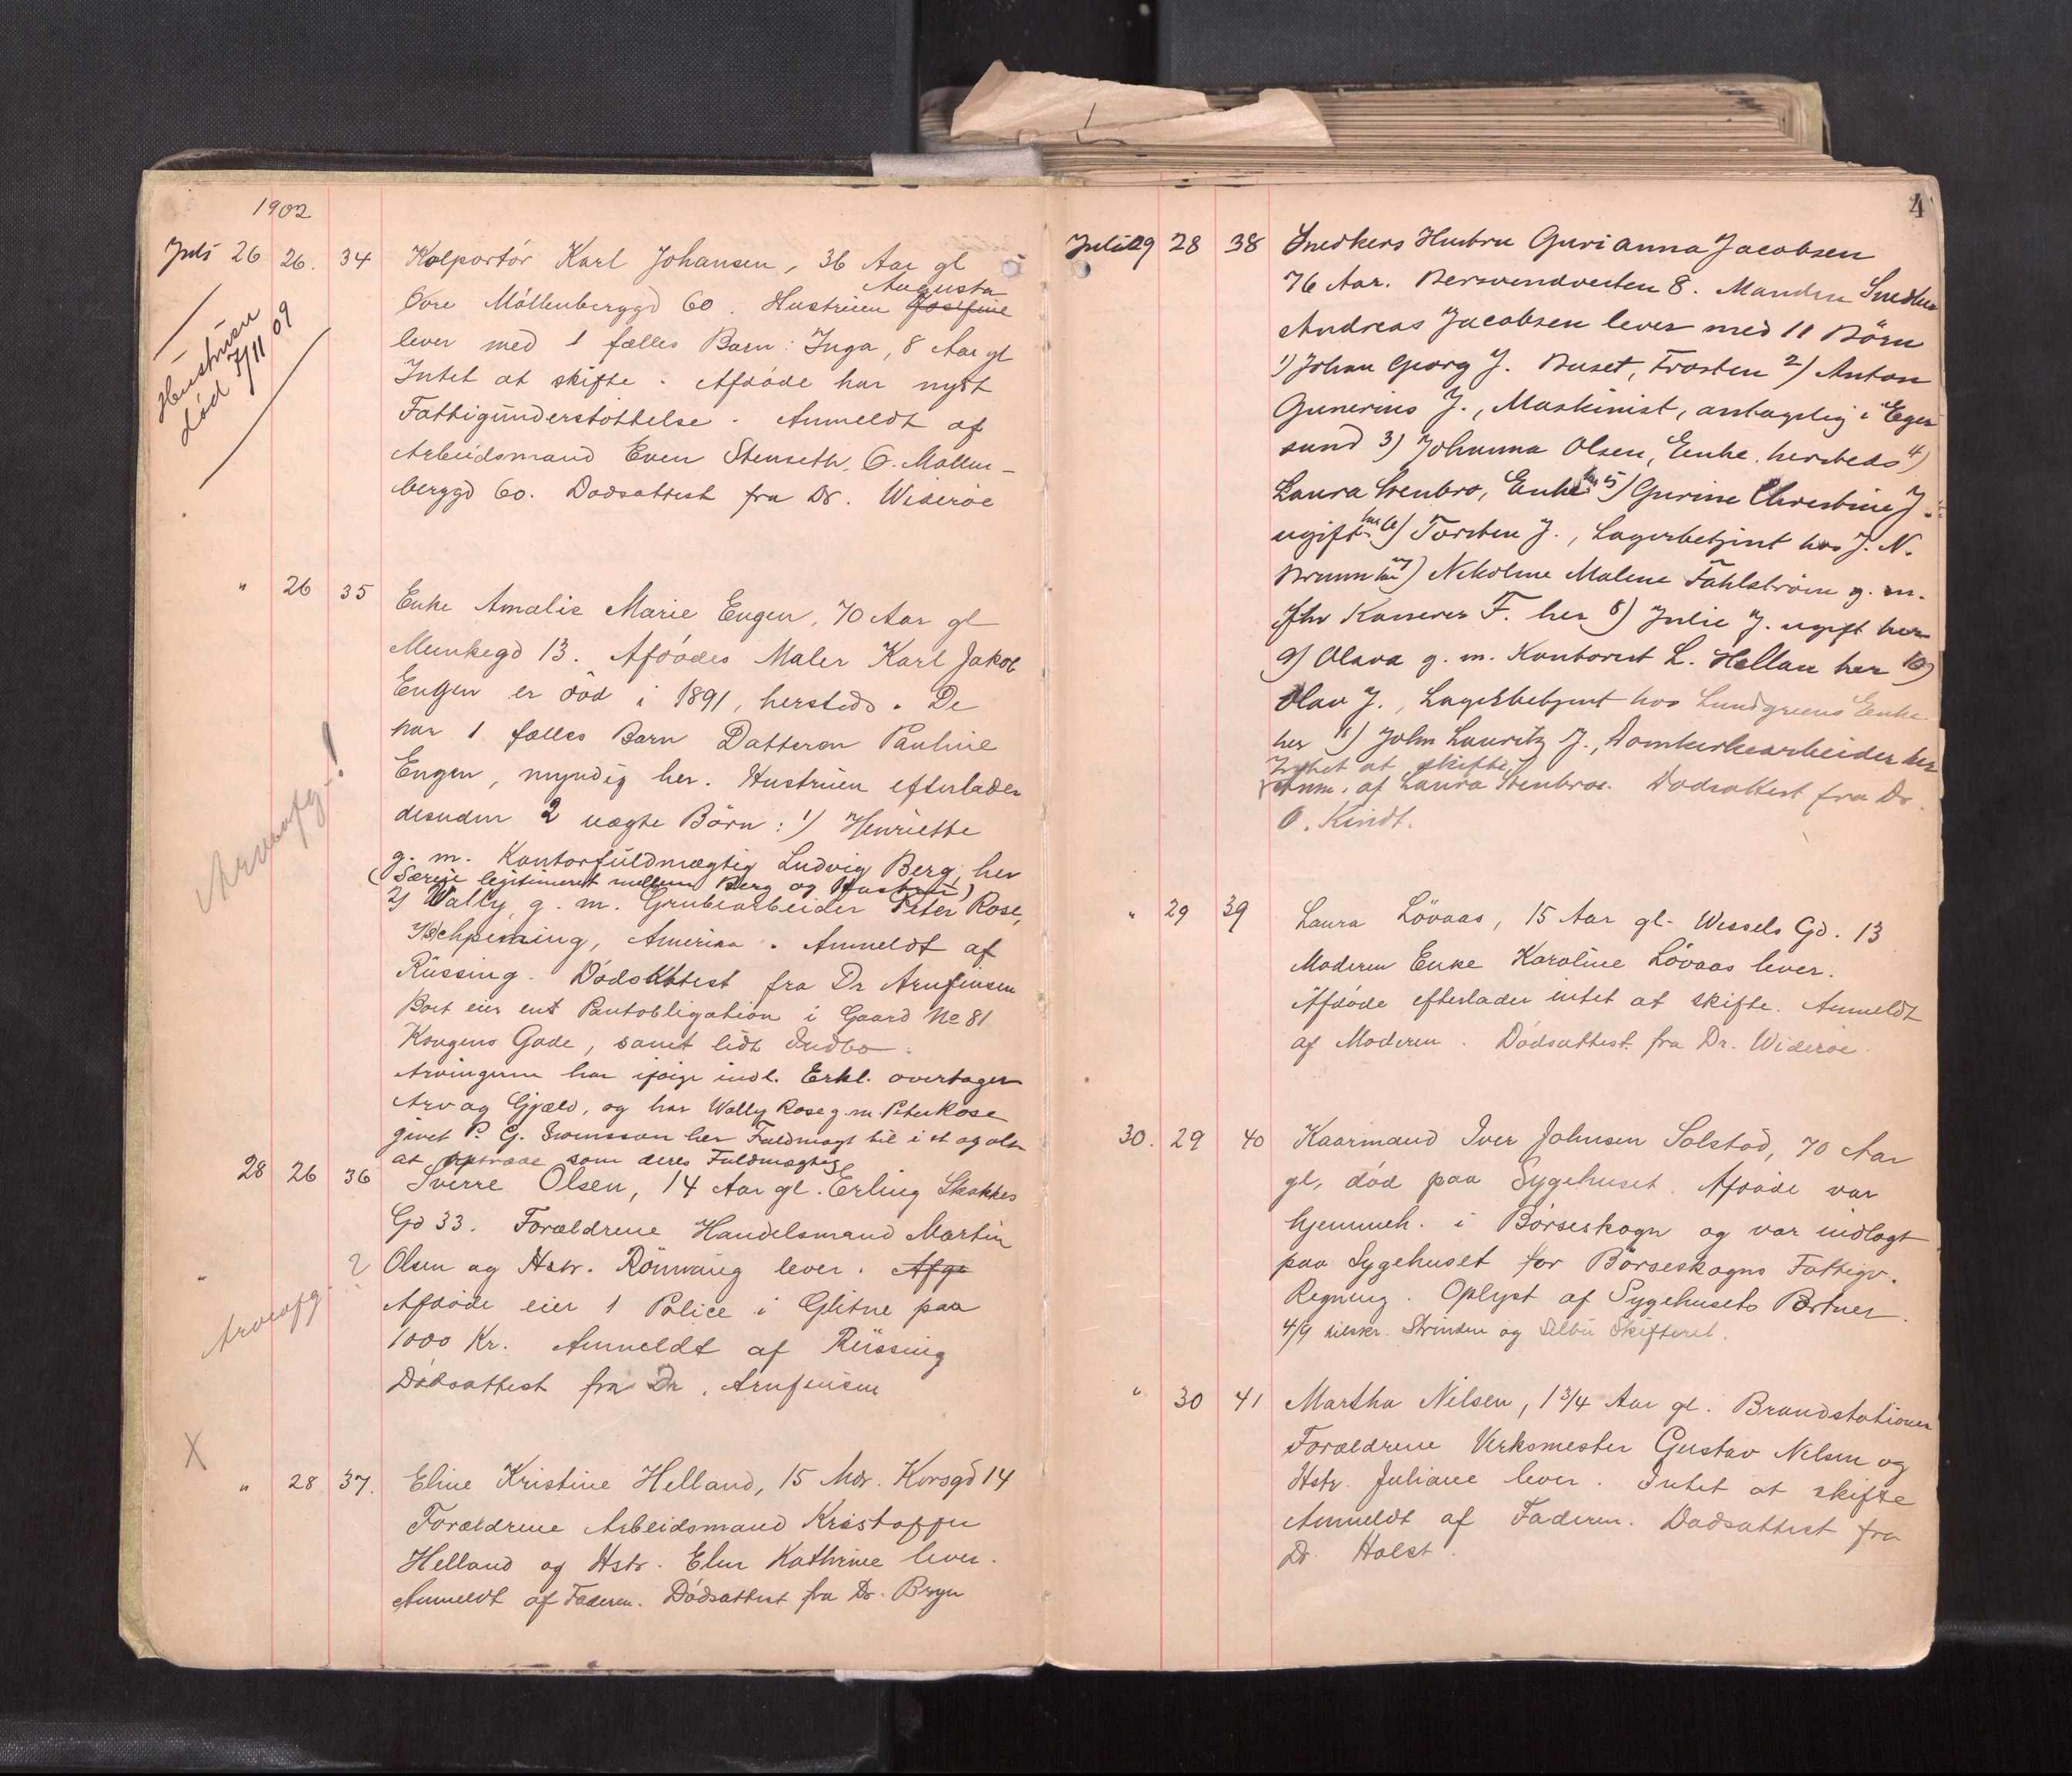 1902
Juli 26 26. 34 Kolportör Karl Johansen, 36 Aar gl
Augusta
Övre Möllenberggd 60. Hustruen Josefine
lever med 1 fælles Barn: Inga, 8 Aar gl
Intet at skifte. Afdöde har nydt
Fattigunderstöttelse. Anmeldt af
Arbeidsmand Even Stenseth, Ö. Möllen-
berggd 60. Dödsattest fra Dr. Wideröe
Hustruen
död 7/11 09
" 26 35 Enke Amalie Marie Engen, 70 Aar gl
Munkegd 13. Afdödes Maler Karl Jakob
Engen er död i 1891, hersteds. De
har 1 fælles Barn Datteren Pauline
Engen, myndig her. Hustruen efterlader
desuden 2 uægte Börn: 1) Henriette
g. m. Kontorfuldmægtig Ludvig Berg, her
(Særeie legitimeret mellem Berg og Hustru)
2) Wally g. m. Grubearbeider Peter Rose,
Ischpeming, Amerika. Anmeldt af
Rüssing. Dödsattest fra Dr Arnfinsen
Boet eier ent Pantobligation i Gaard No 81
Kongens Gade, samt lidt Indbo.
Arvingerne har indl. Erkl. overtager
Arv og Gjæld, og har Wally Rose g. m. Peter Rose
givet P. G. Svensson her Fuldmagt til i et og alt
at optræde som deres Fuldmægtig
Arveafg.!
28 26 36 Sverre Olsen, 14 Aar gl. Erling Skakkes
Gd 33. Forældrene Handelsmand Martin
Olsen og Hstr. Rönnaug lever. Afge
Afdöde eier 1 Police i Glitne paa
1000 Kr. Anmeldt af Rüssing
Dödsattest fra Dr. Arnfinsen
"
Arveafg. ?
X
" 28 37. Eline Kristine Helland, 15 Mdr. Korsgd 14
Forældrene Arbeidsmand Kristoffer
Helland og Hstr. Elen Kathrine lever.
Anmeldt af Faderen. Dödsattest fra Dr. Bryn
4
Juli 29 28 38 Snedkers Hustru Gurianna Jacobsen
76 Aar. Bersvendveiten 8. Manden Snedker
Andreas Jacobsen lever med 11 Börn
1) Johan Georg J. Buset, Frosten 2) Anton
Gunerius J., Maskinist, antagelig i Eger
sund 3) Johanna Olsen, Enke, hersteds 4)
Laura Stenbro, Enke her 5) Gurine Christine J.
ugift her 6) Torsten J., Lagerbetjent hos J. N.
Bruun her 7) Nikoline Malene Fahlström g. m.
fhv Kanerer F. her 8) Julie J. ugift her
9) Olava g. m. Kontorist L. Hellan her 10)
Olav J., Lagerbetjent hos Lundgreens Enke
her 11) John Lauritz J., Domkirkearbeider her
Intet at skifte.
Anm. af Laura Stenbroe. Dödsattest fra Dr.
O. Kindt.
" 29 39 Laura Lövaas, 15 Aar gl. Wessels Gd. 13
Moderen Enke Karoline Lövaas lever.
Afdöde efterlader intet at skifte. Anmeldt
af Moderen. Dödsattest fra Dr. Wideröe.
30. 29 40 Kaarmand Iver Johnsen Solstad, 70 Aar
gl, död paa Sygehuset. Afdöde var
hjemmeh. i Börseskogn og var indlagt
paa Sygehuset for Börseskogns Fattigv.
Regning. Oplyst af Sygehusets Portner.
4/9 tilskr. Strinden og Selbu Skifteret.
" 30 41 Martha Nilsen, 1 3/4 Aar gl. Brandstationen
Forældrene Verksmester Gustav Nilsen og
Hstr. Juliane lever. Intet at skifte
Anmeldt af Faderen. Dödsattest fra
Dr. Holst.